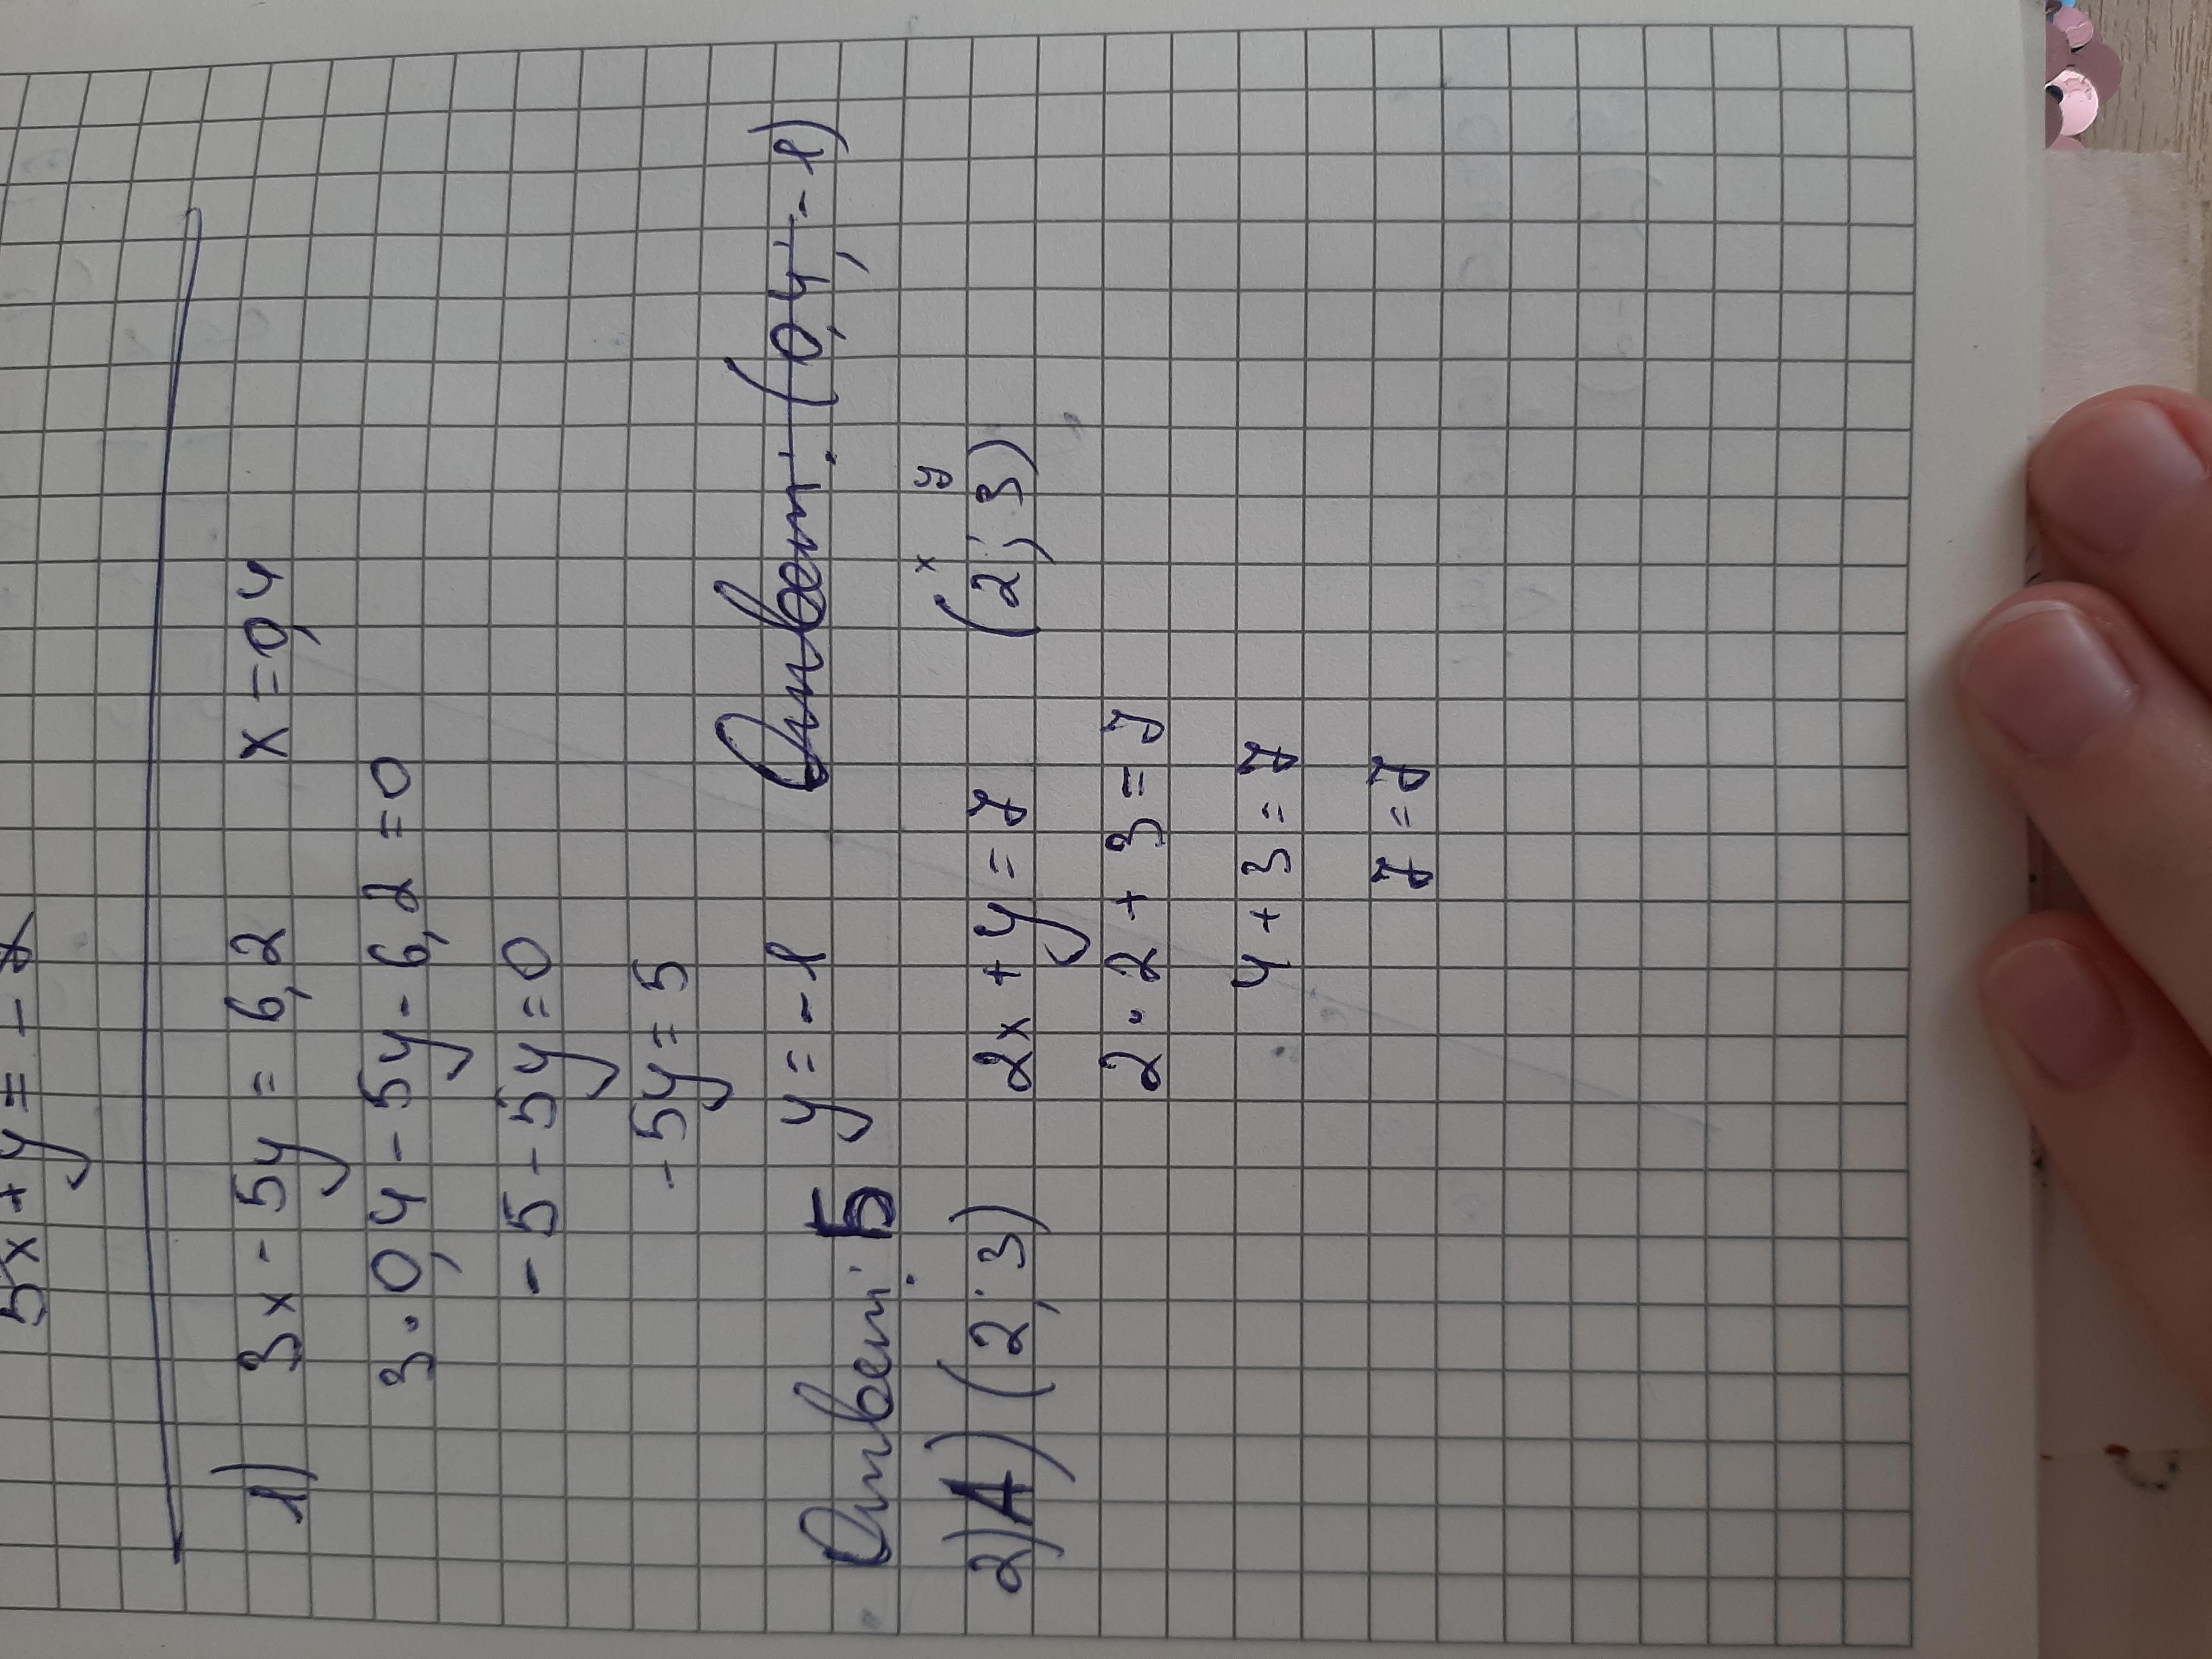 5x + y = -
1) 3x - 5y = 6,2 x = 0,4
3 · 0,4 - 5y - 6,2 = 0
- 5 - 5y = 0
- 5y = 5
y = - 1 Ответ: (0,4; - 1)
Ответ: Б
2) А) (2; 3) 2x + y = 7 (2; 3)
x y
2 · 2 + 3 = 7
4 + 3 = 7
7 = 7